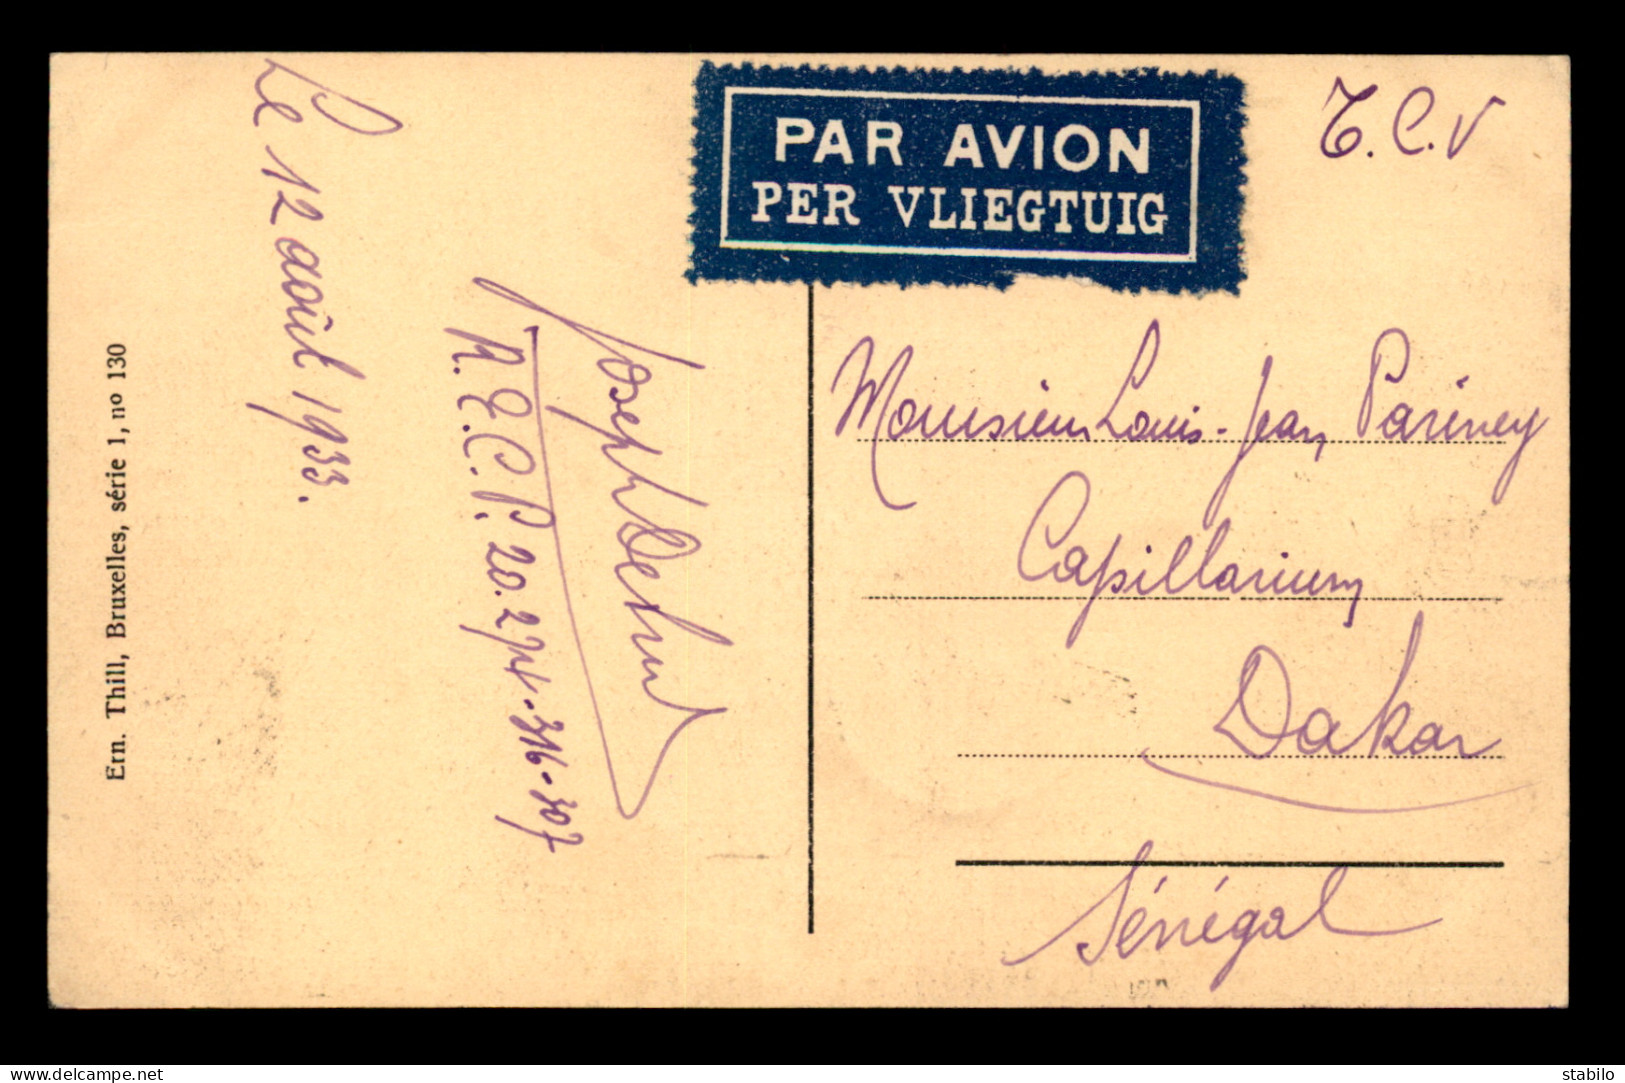 Le 12 août 1933.
Joseph
R.E.C.P. 20.274-316-307
Ern. Thill, Bruxelles, série 1, nº 130
PAR AVION
PER VLIEGTUIG
T.C.V
Monsieur Louis-Jean Pariney
Capillarium
Dakar
Sénégal
delcampe.net
stabilo